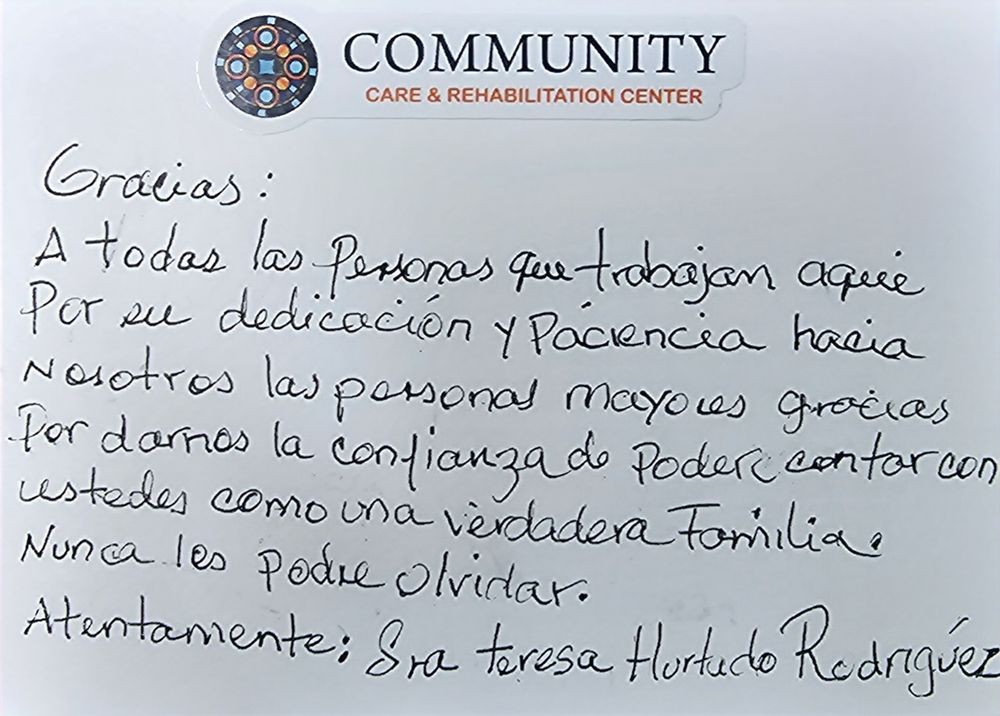 COMMUNITY
CARE & REHABILITATION CENTER
Gracias:
A todas las Personas que trabajan aquie
Por su dedicación y Paciencia hacia
Nosotros las personas mayores gracias
Por darnos la confianza de Poder contar con
ustedes como una verdadera Familia.
Nunca les Podre olvidar.
Atentamente: Sra teresa Hurtado Rodriguéz